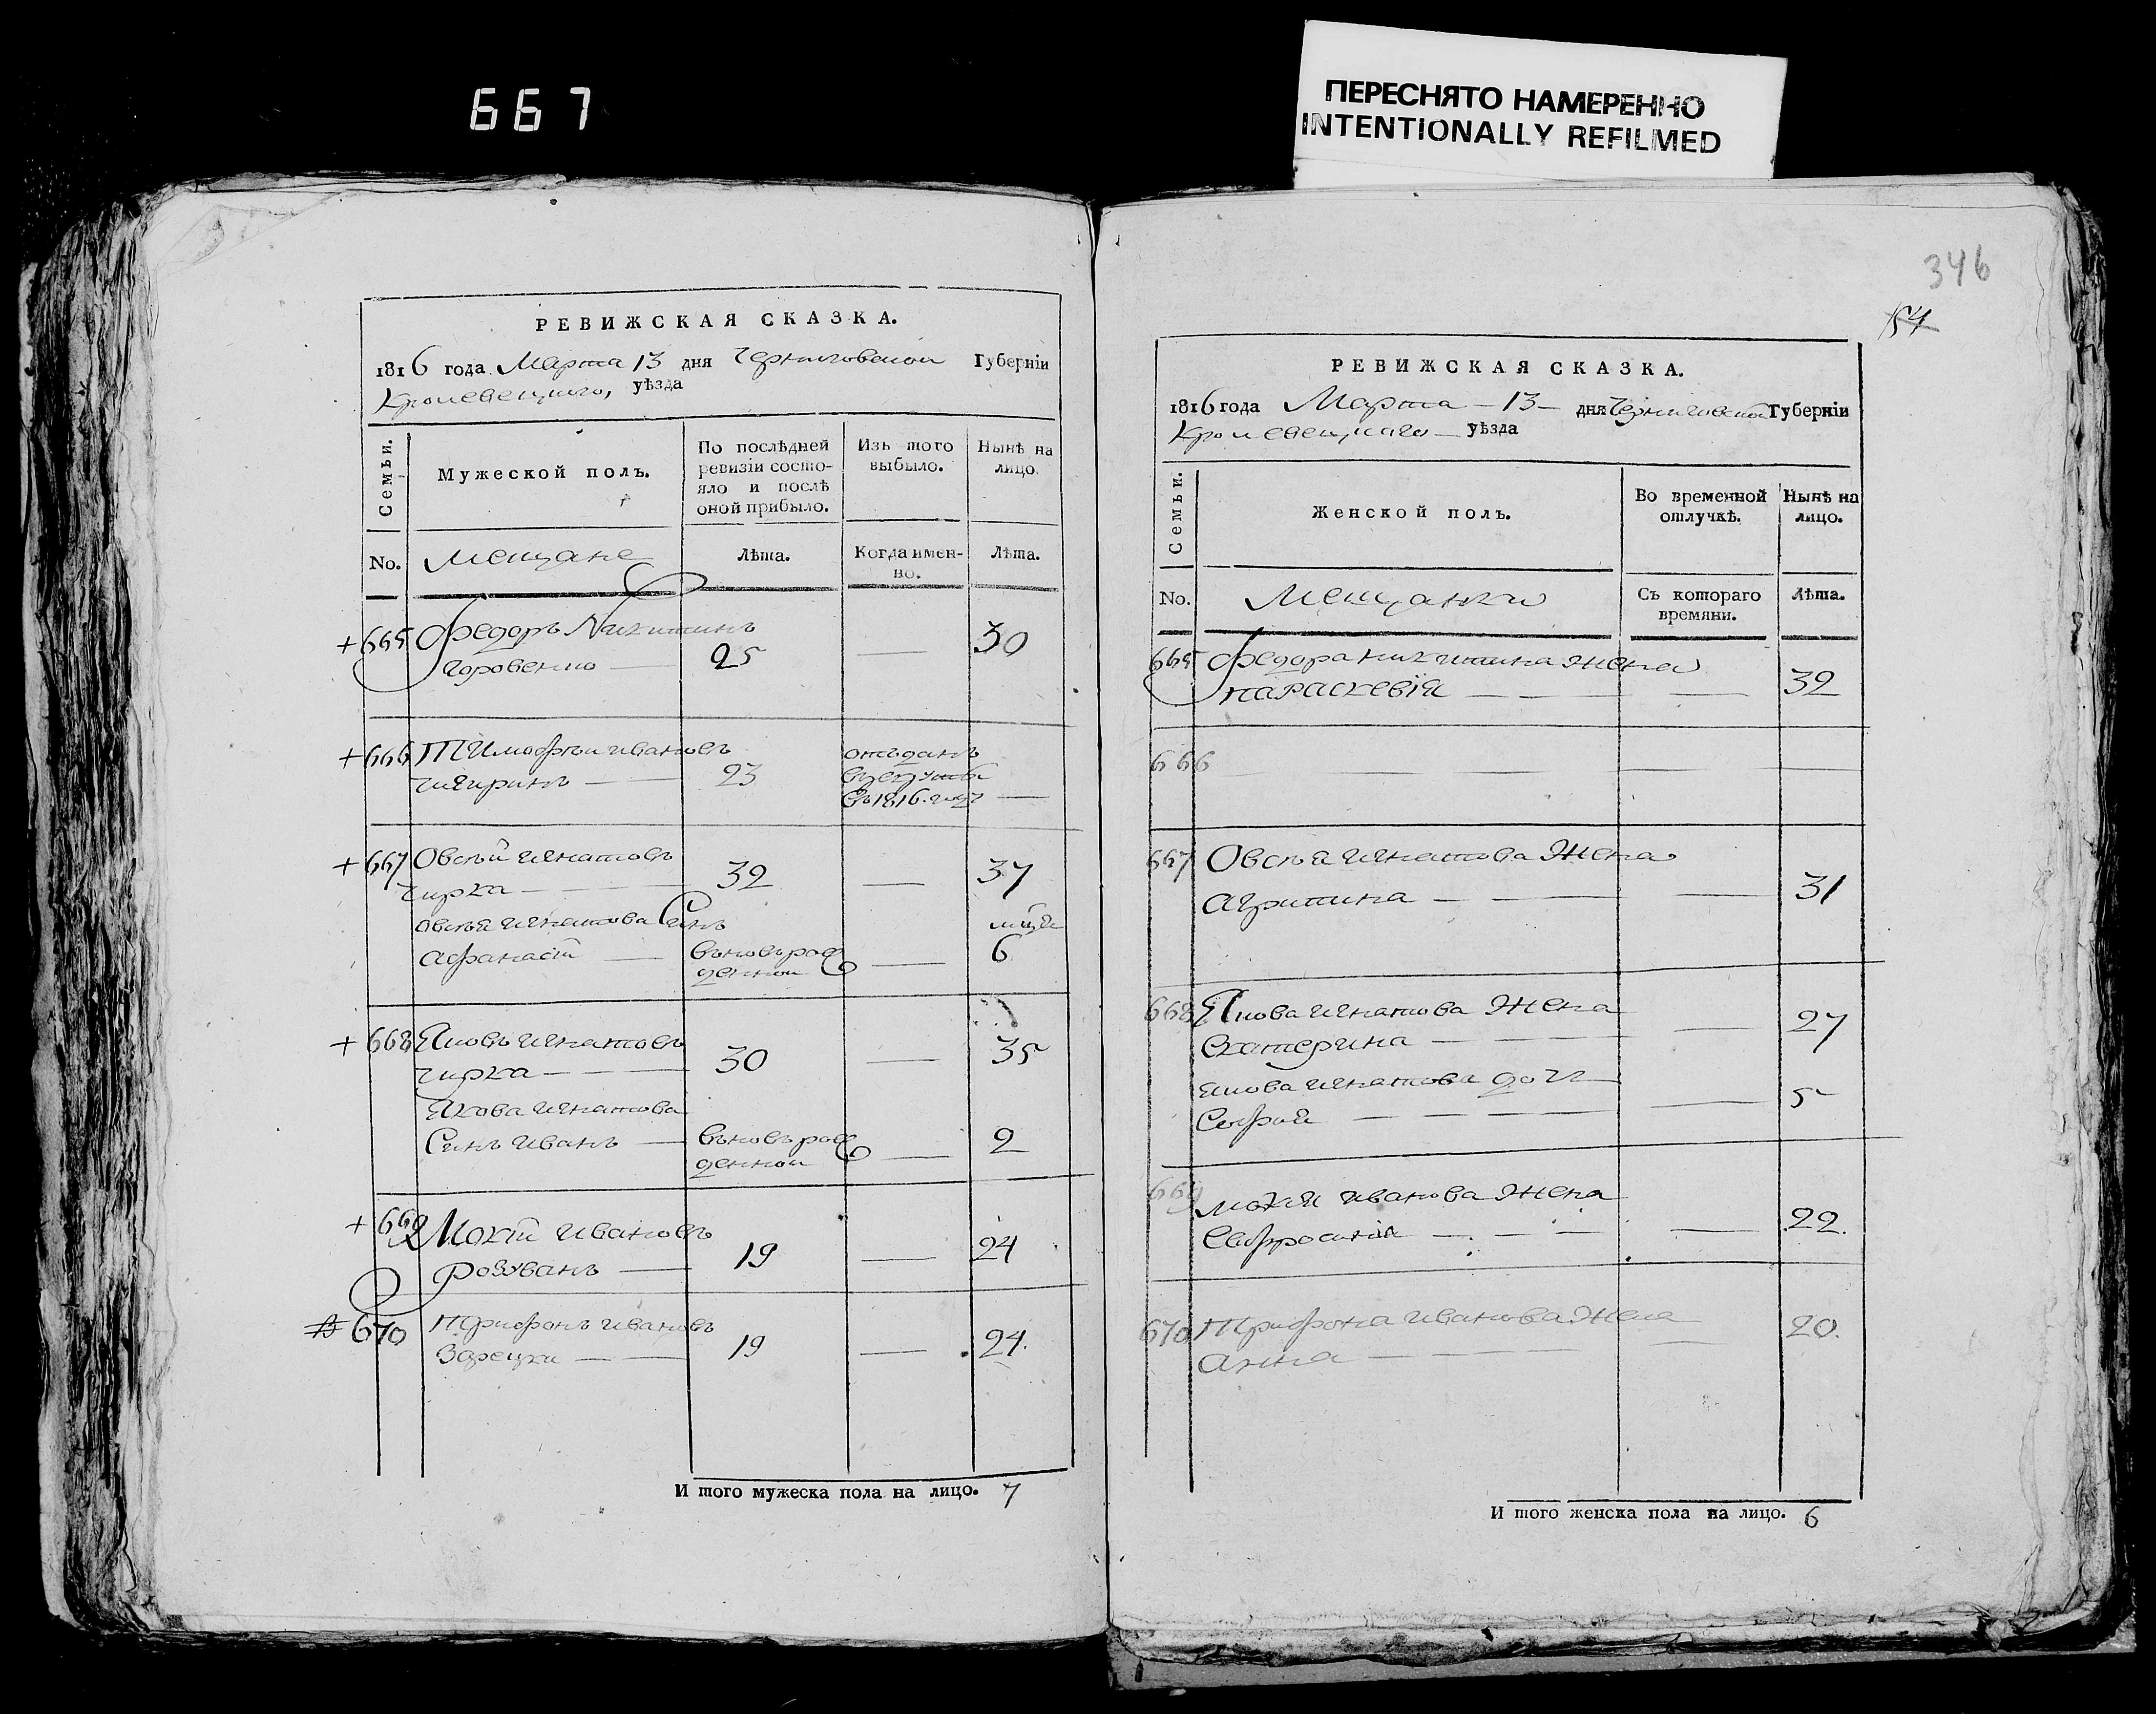 667
ПЕРЕСНЯТО НАМЕРЕННО
INTENTIONALLY REFILMED
РЕВИЖСКАЯ СКАЗКА.
1816 года Марта 13 дня Черниговской Губерніи
Кролевецкого, уѣзда
Семьи.
Мужеской полъ.
По послѣдней
ревизіи состо-
яло и послѣ
оной прибыло.
Изъ того
выбыло.
Нынѣ на
лицо.
No.
мещане
Лѣта.
Когда имен-
но.
Лѣта.
+665 Федоръ Никитинъ
25 — 30
+666 Тимофѣй ивановъ
чигринъ — 23
отъданъ
въ 1816. году —
+667 Овсѣй игнатовъ
чирка — 32 — 37
овсѣя игнатова Синъ
Афанасій — вьновьрож
денной — 6
+668 Яковъ игнатовъ
чирка — 30 — 35
Якова игнатова
Синъ иванъ — вьновьрож
денной — 2
+669 Мокій ивановъ
розуванъ — 19 — 24
670 Трифонъ ивановъ
Зарецки — 19 — 24.
И того мужеска пола на лицо. 7
346
154
РЕВИЖСКАЯ СКАЗКА.
1816 года Марта — 13 — дня Черниговской Губерніи
Кролевецкаго — уѣзда
Семьи.
Женской полъ.
Во временной
отлучкѣ.
Нынѣ на
лицо.
No.
Мещанки
Съ котораго
времяни.
Лѣта.
665 Федора никитина жена
параскевія — — — 32
666 — — —
667 Овсѣя игнатова Жена
агрипина — — — 31
668 Якова игнатова Жена
Екатерина — — — 27
якова игнатова дочь
София — — — 5
669 мокия иванова Жена
Евфросиния — — — 22.
670 Трифона иванова Жена
анна — — — 20.
И того женска пола на лицо. 6